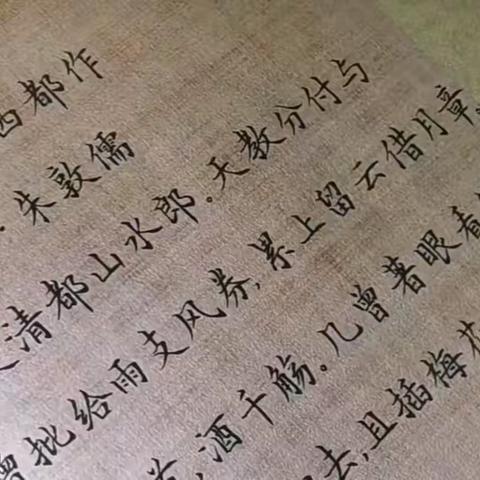 西都作
·朱敦儒
清都山水郎。天教分付与
曾批给雨支风券,累上留云借月章。
酒千觞。几曾着眼看
去,且插梅花